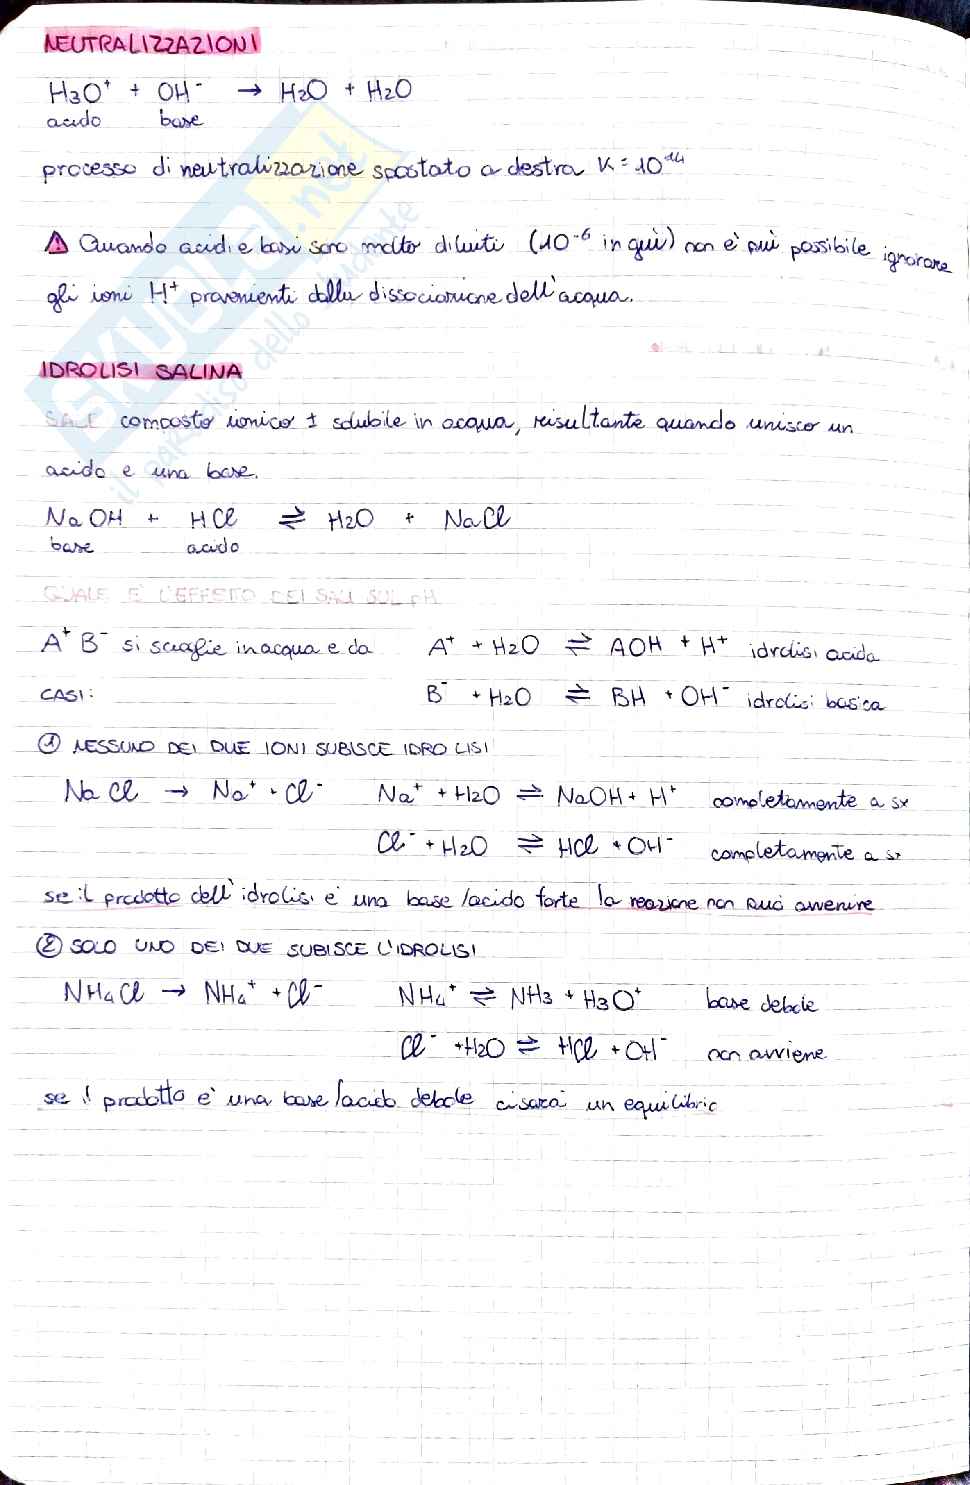 NEUTRALIZZAZIONI
H3O⁺ + OH⁻ → H2O + H2O
acido base
processo di neutralizzazione spostato a destra K = 10¹⁴
⚠ Quando acidi e basi sono molto diluiti (10⁻⁶ in giù) non è più possibile ignorare
gli ioni H⁺ provenienti dalla dissociazione dell'acqua.
IDROLISI SALINA
SALE composto ionico ± solubile in acqua, risultante quando unisco un
acido e una base.
NaOH + HCl ⇌ H2O + NaCl
base acido
QUALE È L'EFFETTO DEI SALI SUL pH
A⁺ B⁻ si scioglie in acqua e da A⁺ + H2O ⇌ AOH + H⁺ idrolisi acida
CASI: B⁻ + H2O ⇌ BH + OH⁻ idrolisi basica
① NESSUNO DEI DUE IONI SUBISCE IDROLISI
NaCl → Na⁺ + Cl⁻ Na⁺ + H2O ⇌ NaOH + H⁺ completamente a sx
Cl⁻ + H2O ⇌ HCl + OH⁻ completamente a sx
se il prodotto dell'idrolisi è una base/acido forte la reazione non può avvenire
② SOLO UNO DEI DUE SUBISCE L'IDROLISI
NH4Cl → NH4⁺ + Cl⁻ NH4⁺ ⇌ NH3 + H3O⁺ base debole
Cl⁻ + H2O ⇌ HCl + OH⁻ non avviene
se il prodotto è una base/acido debole ci sarà un equilibrio
SKUOLA.net
il paradiso dello studente